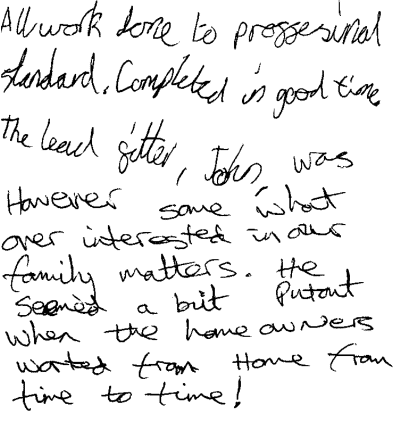 All work done to proggesinal
standard. Completed in good time
The lead fitter, John, was
However some what
over interested in our
family matters. He
seemed a bit Putout
when the home owners
worked from Home from
time to time!